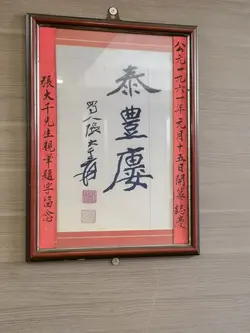 公元一九六一年元月十五日開幕誌慶
泰豐廔
蜀人張大千爰
張大千先生親筆題字留念